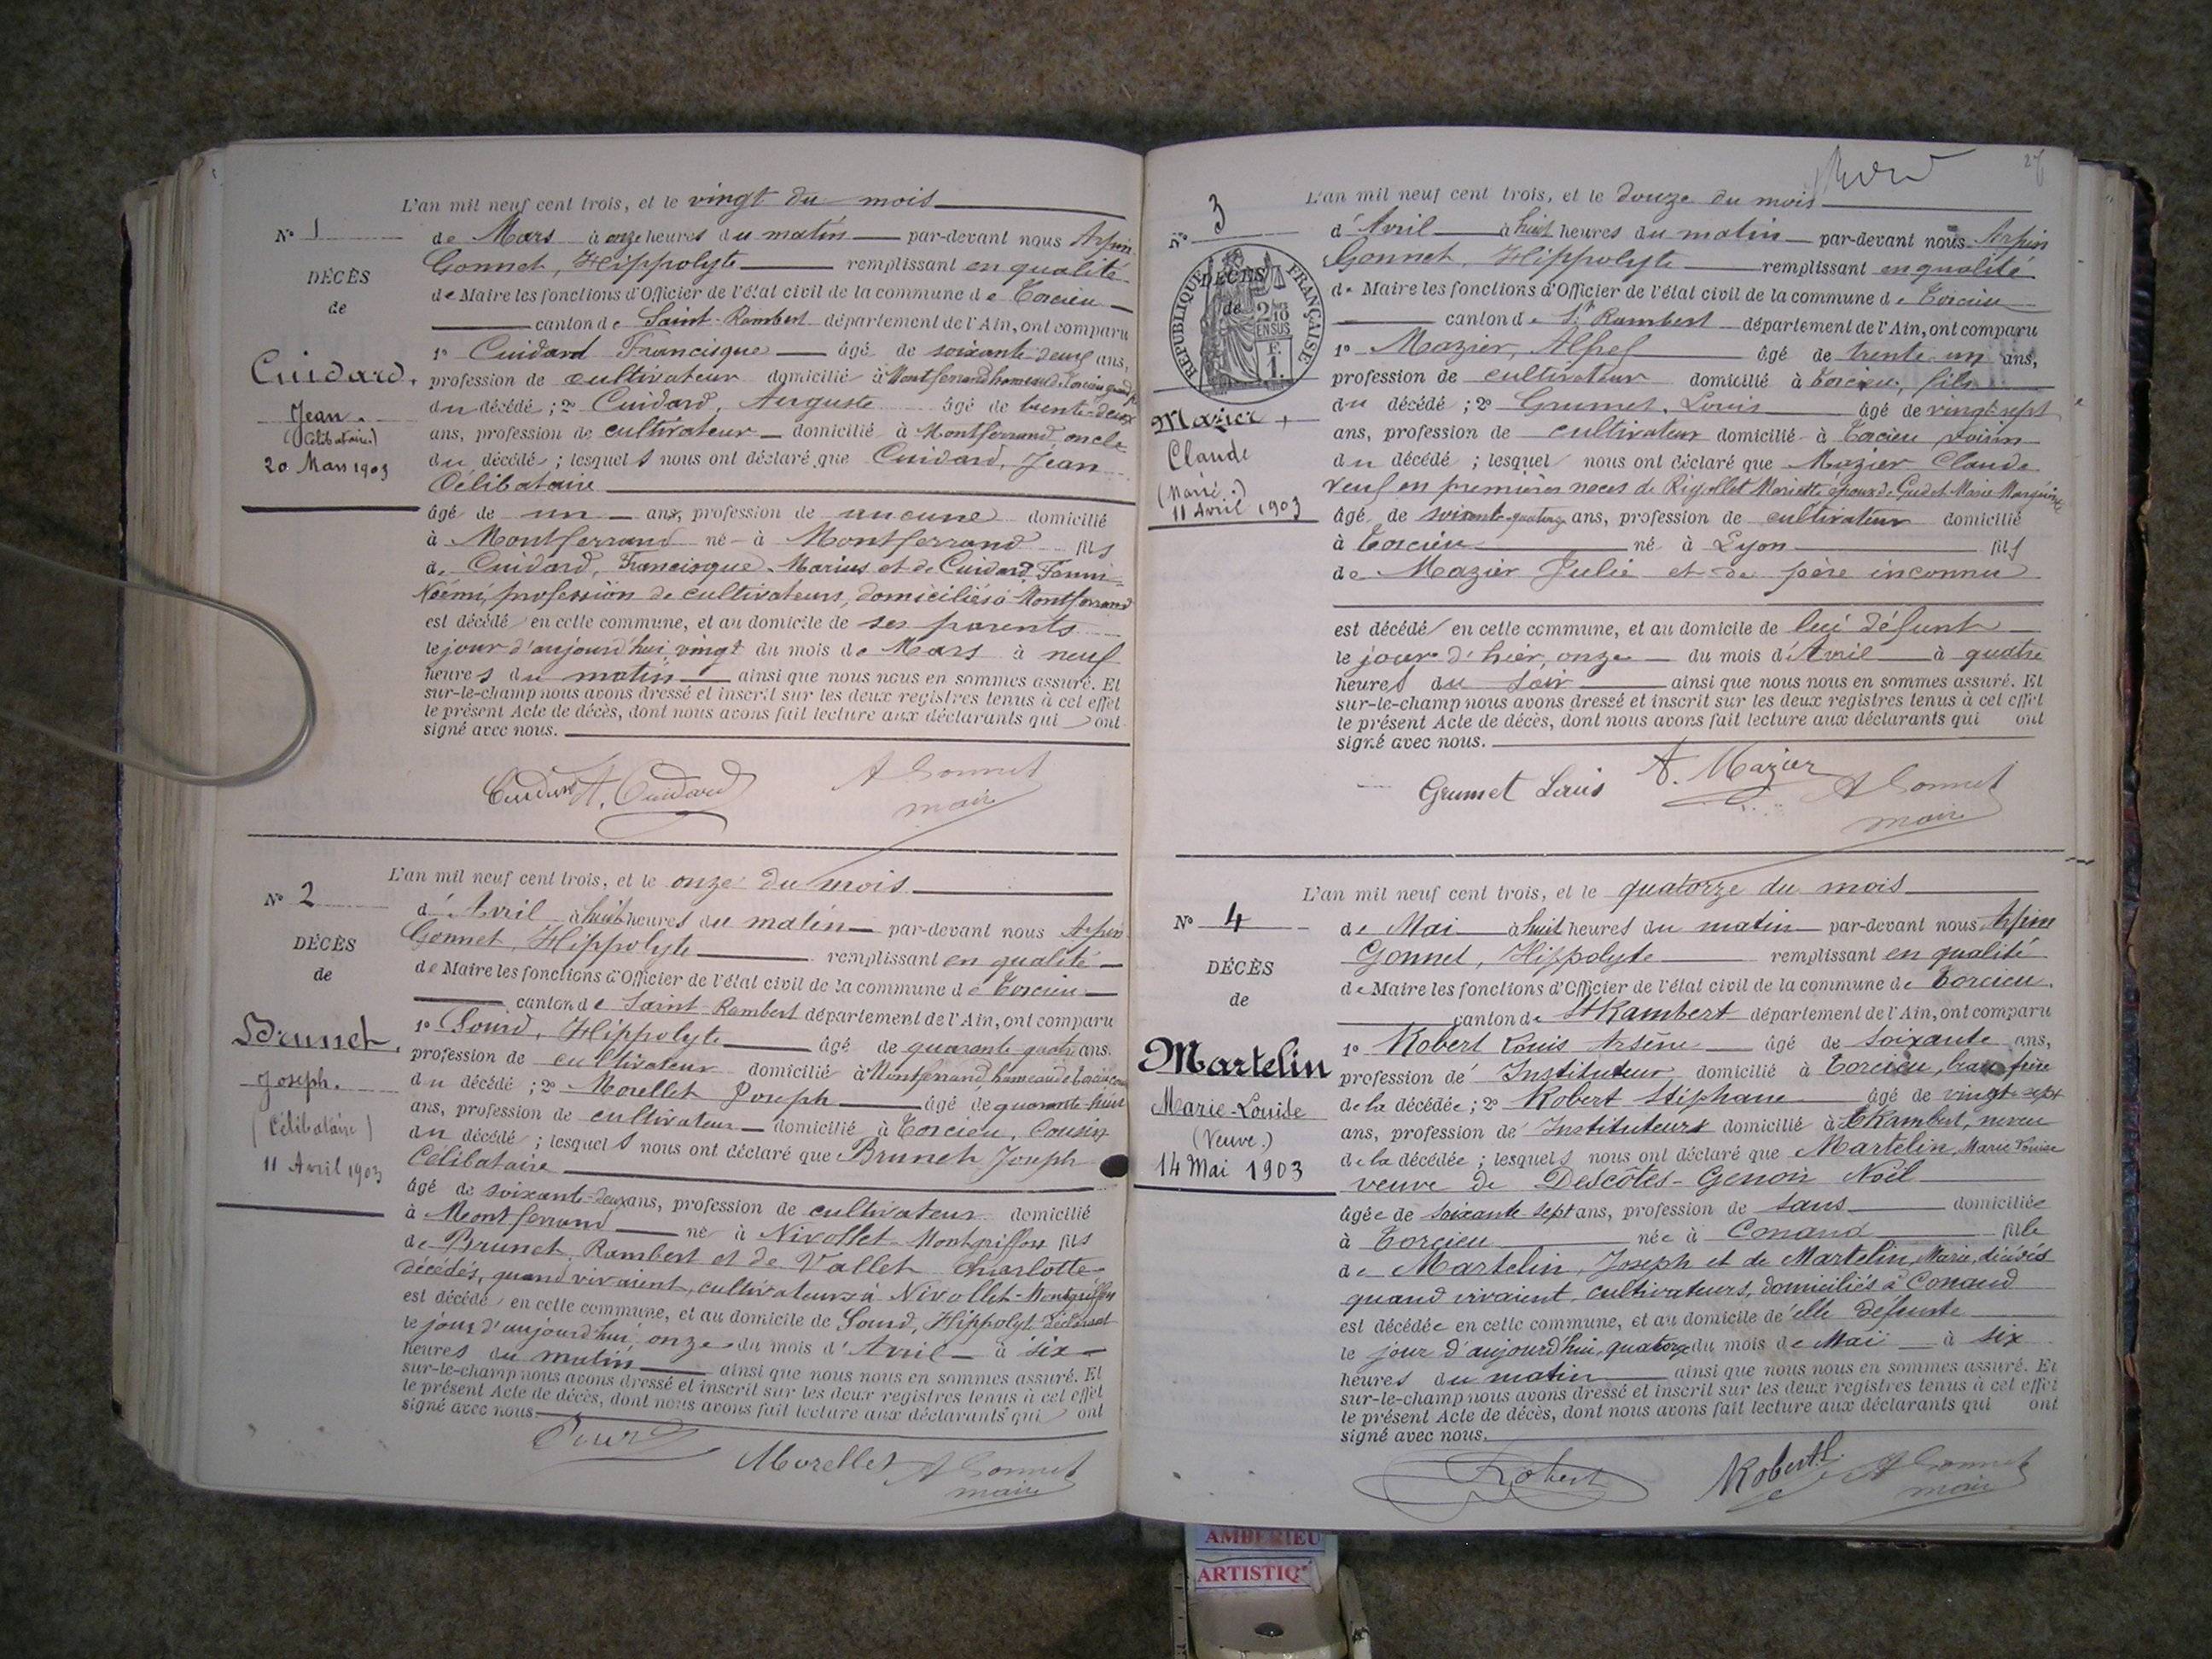 L'an mil neuf cent trois, et le vingt du mois
N° 1
de Mars à onze heures du matin par-devant nous Arpin
Gonnet, Hippolyte remplissant en qualité
DÉCÈS
de Maire les fonctions d'Officier de l'état civil de la commune de Torcieu
de
canton de Saint-Rambert département de l'Ain, ont comparu
1° Cuidard Francisque âgé de soixante-deux ans,
Cuidard,
profession de cultivateur domicilié à Montferrand hameau de Torcieu
Jean.
du décédé ; 2° Cuidard, Auguste âgé de trente-deux
(Célibataire)
ans, profession de cultivateur domicilié à Montferrand, oncle
20 Mars 1903
du décédé ; lesquels nous ont déclaré que Cuidard, Jean
Célibataire
âgé de un ans, profession de aucune domicilié
à Montferrand né à Montferrand fils
de Cuidard, Francisque Marius et de Cuidard Fanni-
Noémi, profession de cultivateurs, domiciliés à Montferrand
est décédé en cette commune, et au domicile de ses parents
le jour d'aujourd'hui vingt du mois de Mars à neuf
heures du matin ainsi que nous nous en sommes assuré. Et
sur-le-champ nous avons dressé et inscrit sur les deux registres tenus à cet effet
le présent Acte de décès, dont nous avons fait lecture aux déclarants qui ont
signé avec nous.
Cuidard A. Cuidard A Gonnet
maire
L'an mil neuf cent trois, et le onze du mois
N° 2
d'Avril à huit heures du matin par-devant nous Arpin
Gonnet, Hippolyte remplissant en qualité
DÉCÈS
de Maire les fonctions d'Officier de l'état civil de la commune de Torcieu
de
canton de Saint-Rambert département de l'Ain, ont comparu
1° Sourd, Hippolyte âgé de quarante quatre ans.
Brunet,
profession de cultivateur domicilié à Montferrand hameau de Torcieu
Joseph.
du décédé ; 2° Morellet Joseph âgé de quarante-huit
(Célibataire)
ans, profession de cultivateur domicilié à Torcieu, Cousin
11 Avril 1903
du décédé ; lesquels nous ont déclaré que Brunet Joseph
Célibataire
âgé de soixante-deux ans, profession de cultivateur domicilié
à Montferrand né à Nivollet-Montgriffon fils
de Brunet, Rambert et de Vallet Charlotte
décédés, quand vivaient, cultivateurs à Nivollet-Montgriffon
est décédé en cette commune, et au domicile de Sourd, Hippolyte déclarant
le jour d'aujourd'hui onze du mois d'Avril à six
heures du matin ainsi que nous nous en sommes assuré. Et
sur-le-champ nous avons dressé et inscrit sur les deux registres tenus à cet effet
le présent Acte de décès, dont nous avons fait lecture aux déclarants qui ont
signé avec nous
Sourd Morellet A Gonnet
maire
L'an mil neuf cent trois, et le douze du mois
N° 3
d'Avril à huit heures du matin par-devant nous Arpin
Gonnet, Hippolyte remplissant en qualité
RÉPUBLIQUE FRANÇAISE
DÉCÈS
de Maire les fonctions d'Officier de l'état civil de la commune de Torcieu
de
canton de St Rambert département de l'Ain, ont comparu
1° Mazier, Alfred âgé de trente-un ans,
profession de cultivateur domicilié à Torcieu, fils
Mazier
du décédé ; 2° Grumet, Louis âgé de vingt-sept
ans, profession de cultivateur domicilié à Torcieu voisin
Claude
du décédé ; lesquel nous ont déclaré que Mazier Claude
(Marié.)
veuf en premières noces de Rigollet Mariette époux de Gudet Marie Marguerite
11 Avril 1903
âgé de soixante-quatorze ans, profession de cultivateur domicilié
à Torcieu né à Lyon fils
de Mazier Julie et de père inconnu
est décédé en cette commune, et au domicile de lui défunt
le jour d'hier, onze du mois d'Avril à quatre
heures du soir ainsi que nous nous en sommes assuré. Et
sur-le-champ nous avons dressé et inscrit sur les deux registres tenus à cet effet
le présent Acte de décès, dont nous avons fait lecture aux déclarants qui ont
signé avec nous.
Grumet Louis A. Mazier A Gonnet
maire
L'an mil neuf cent trois, et le quatorze du mois
N° 4
de Mai à huit heures du matin par-devant nous Arpin
Gonnet, Hippolyte remplissant en qualité
DÉCÈS
de Maire les fonctions d'Officier de l'état civil de la commune de Torcieu.
de
canton de St Rambert département de l'Ain, ont comparu
1° Robert Louis Arsène âgé de soixante ans,
Martelin
profession de Instituteur domicilié à Torcieu, beau frère
Marie-Louise
de la décédée ; 2° Robert Stéphane âgé de vingt-sept
(Veuve.)
ans, profession de Instituteurs domicilié à St Rambert, neveu
14 Mai 1903
de la décédée ; lesquels nous ont déclaré que Martelin, Marie Louise
veuve de Descôtes-Genon Noël
âgée de soixante sept ans, profession de sans domiciliée
à Torcieu née à Conand fille
de Martelin, Joseph et de Martelin, Marie, décédés
quand vivaient cultivateurs, domiciliés à Conand
est décédée en cette commune, et au domicile de elle défunte
le jour d'aujourd'hui, quatorze du mois de Maï à six
heures du matin ainsi que nous nous en sommes assuré. Et
sur-le-champ nous avons dressé et inscrit sur les deux registres tenus à cet effet
le présent Acte de décès, dont nous avons fait lecture aux déclarants qui ont
signé avec nous.
Robert Robert A Gonnet
maire
AMBERIEU
ARTISTIQ